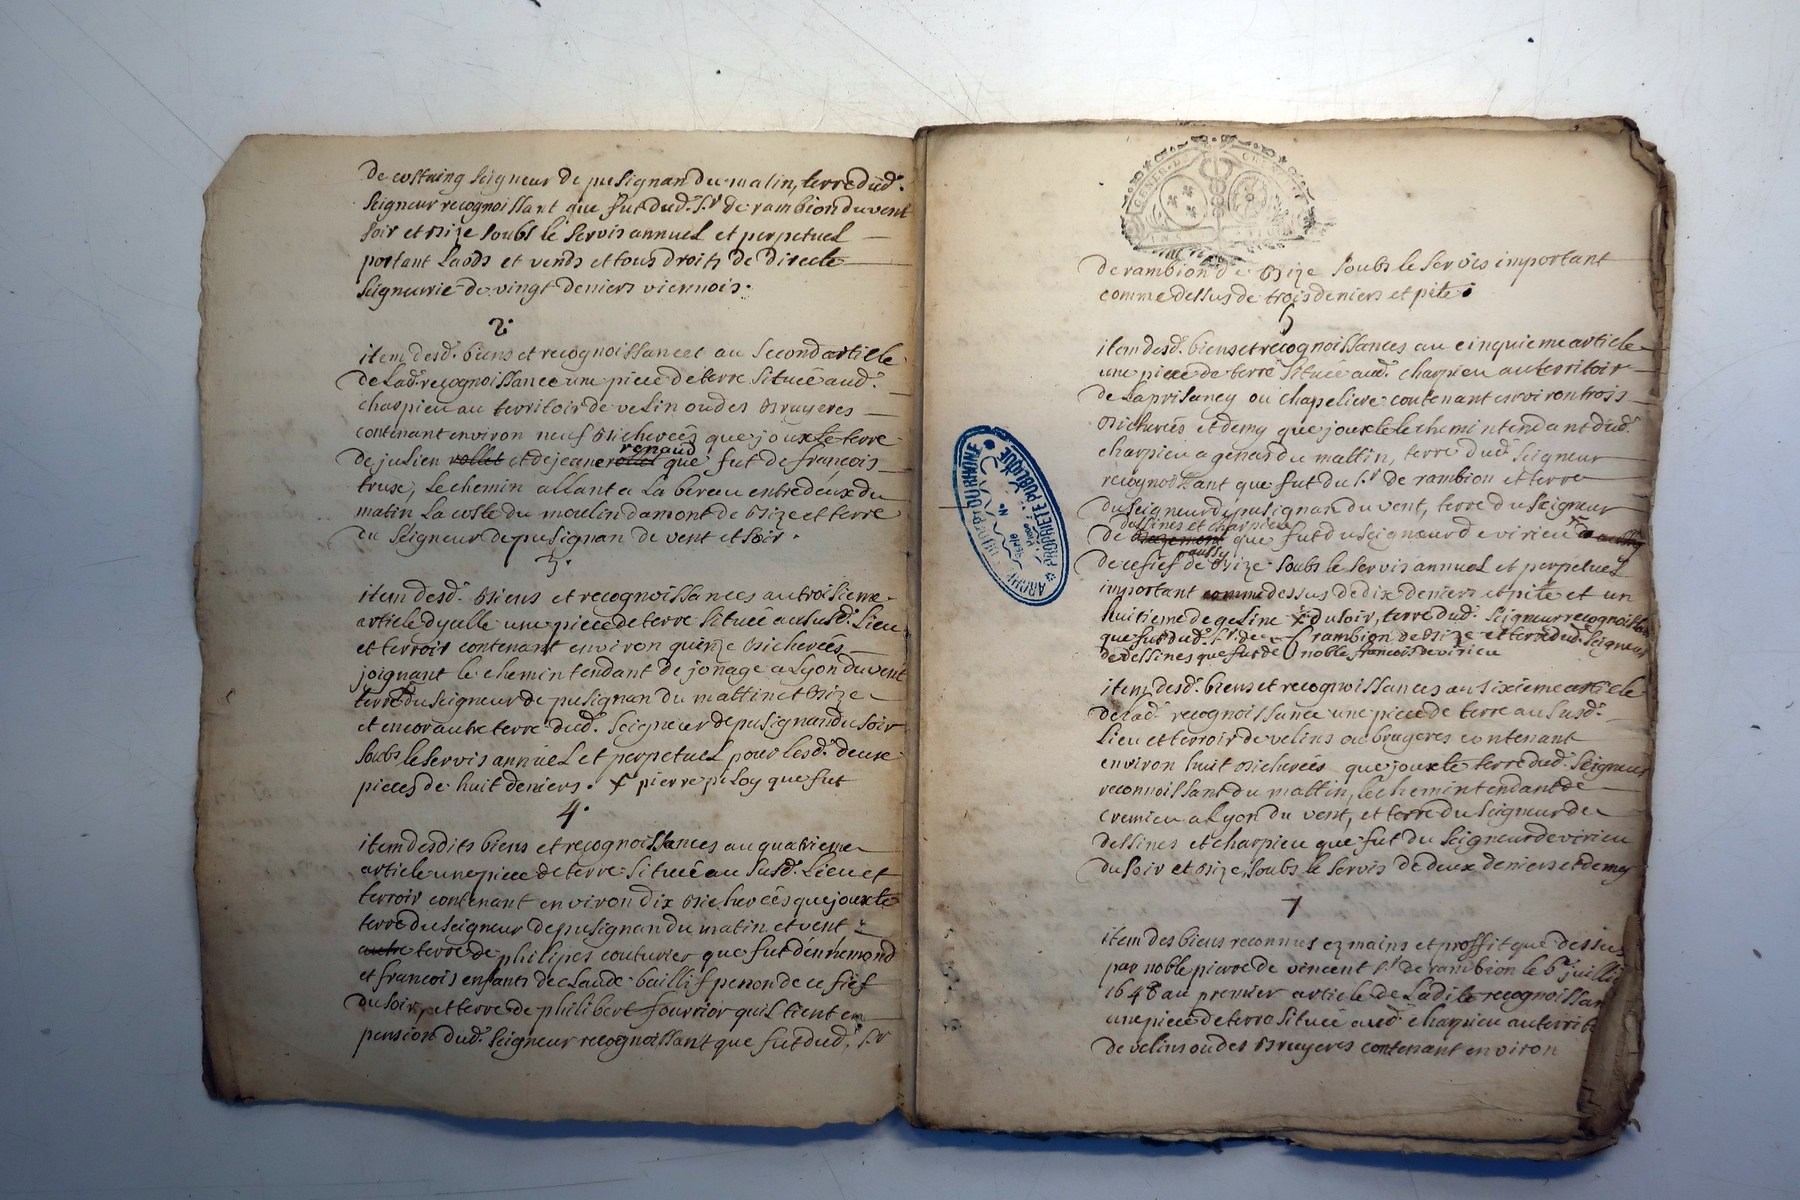 de costaing seigneur de pusignan du matin, terre dud.
seigneur recognoissant que fut dud. Sr de rambion du vent
soir et bize soubs le servis annuel et perpetuel
portant laods et vends et tous droits de directe
seigneurie de vingt deniers viennois.
2.
item desd. biens et recognoissances au second article
de lad. recognoissance une piece de terre située aud.
charpieu au territoir de velin ou des bruyeres
contenant environ neuf bicherées que jouxte terre
renaud
de julien rollet et de jeane rollet que fut de françois
truse, le chemin allant a la bereau entre deux du
matin la coste du moulin damont de bize et terre
du seigneur de pusignan de vent et soir.
3.
item desd. biens et recognoissances au troisieme
article d'ycelle une piece de terre située au susd. lieu
et terroir contenant environ quinze bicherées
joignant le chemin tendant de jonage a Lyon du vent
terre du seigneur de pusignan du mattin et bize
et encor autre terre dud. seigneur de pusignan du soir
soubs le servis annuel et perpetuel pour lesd. deux
pieces de huit deniers. + pierre piloy que fut
4.
item desdits biens et recognoissances au quatrieme
article une piece de terre située au susd. lieu et
terroir contenant environ dix bicherées que jouxte
terre du seigneur de pusignan du matin et vent
autre terre de philipes couturier que fut d'ennemond
et francois enfants de claude baillif penon de ce fief
du soir, et terre de philibert fourrior quil tient en
pension dud. seigneur recognoissant que fut dud. Sr
de rambion de bize soubs le servis important
comme dessus de trois deniers et pite.
5
item desd. biens et recognoissances au cinquieme article
une piece de terre située aud. charpieu au territoir
de la prisaney ou chapeliere contenant environ trois
bicherées et demy que jouxte le chemin tendant dud.
charpieu a genas du mattin, terre dud. seigneur
recognoissant que fut du Sr de rambion et terre
du seigneur de pusignan du vent, terre du seigneur
dessines et charpieu
de que fut du seigneur de virieu
aussy
de ce fief de bize soubs le servis annuel et perpetuel
important comme dessus de dix deniers et pite et un
huitieme de geline + du soir, terre dud. seigneur recognoissant
que fut dud. Sr. de rambion de bize et terre dud. seigneur
de dessines que fut de noble francois de virieu
item desd. biens et recognoissances au sixieme article
de lad. recognoissance une piece de terre au susd.
lieu et terroir de velins ou bruyeres contenant
environ huit bicherées que jouxte terre dud. seigneur
reconnoissant du mattin, le chemin tendant de
cremieu a Lyon du vent, et terre du seigneur de
dessines et charpieu que fut du seigneur de virieu
du soir et bize, soubs le servis de deux deniers et demy
7
item des biens reconnus ez mains et proffit que dessus
par noble pierre de vincent Sr de rambion le 6e juillet
1648 au premier article de ladite recognoissan
une piece de terre située aud. charpieu au territ
de velins ou des bruyeres contenant environ
GENER. DE
PROPRIÉTÉ PUBLIQUE
ARCHIV. DU DEPT DU RHONE
Série
No